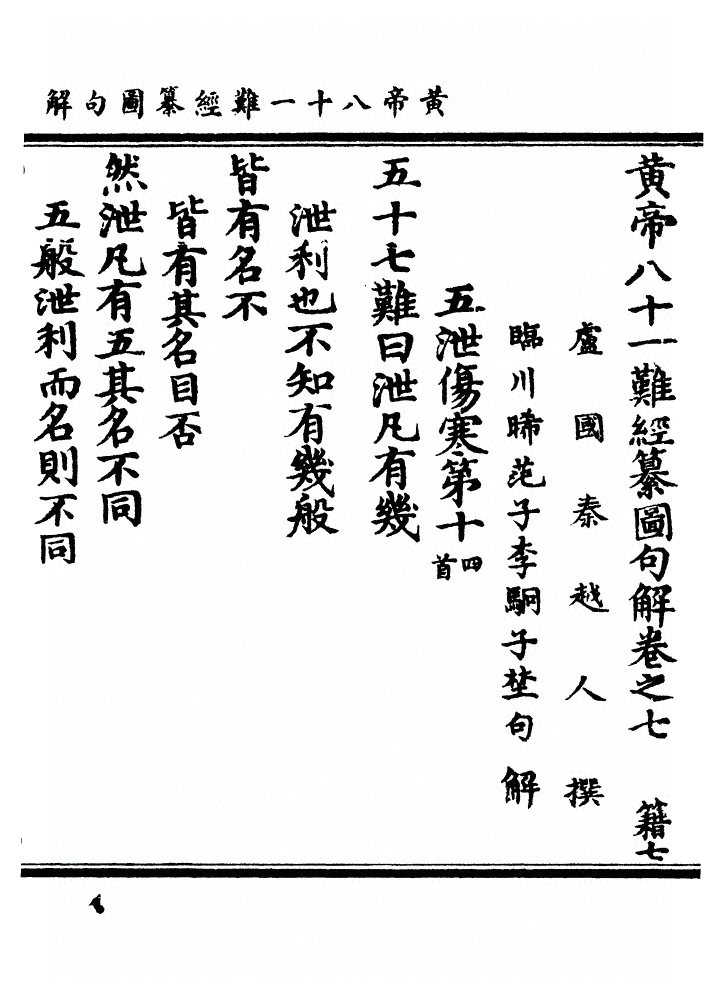 黃帝八十一難經纂圖句解
黃帝八十一難經纂圖句解卷之七 籍七
盧國秦越人撰
臨川晞范子李駉子埜句解
五泄傷寒第十四首
五十七難曰泄凡有幾
泄利也不知有幾般
皆有名不
皆有其名目否
然泄凡有五其名不同
五般泄利而名則不同